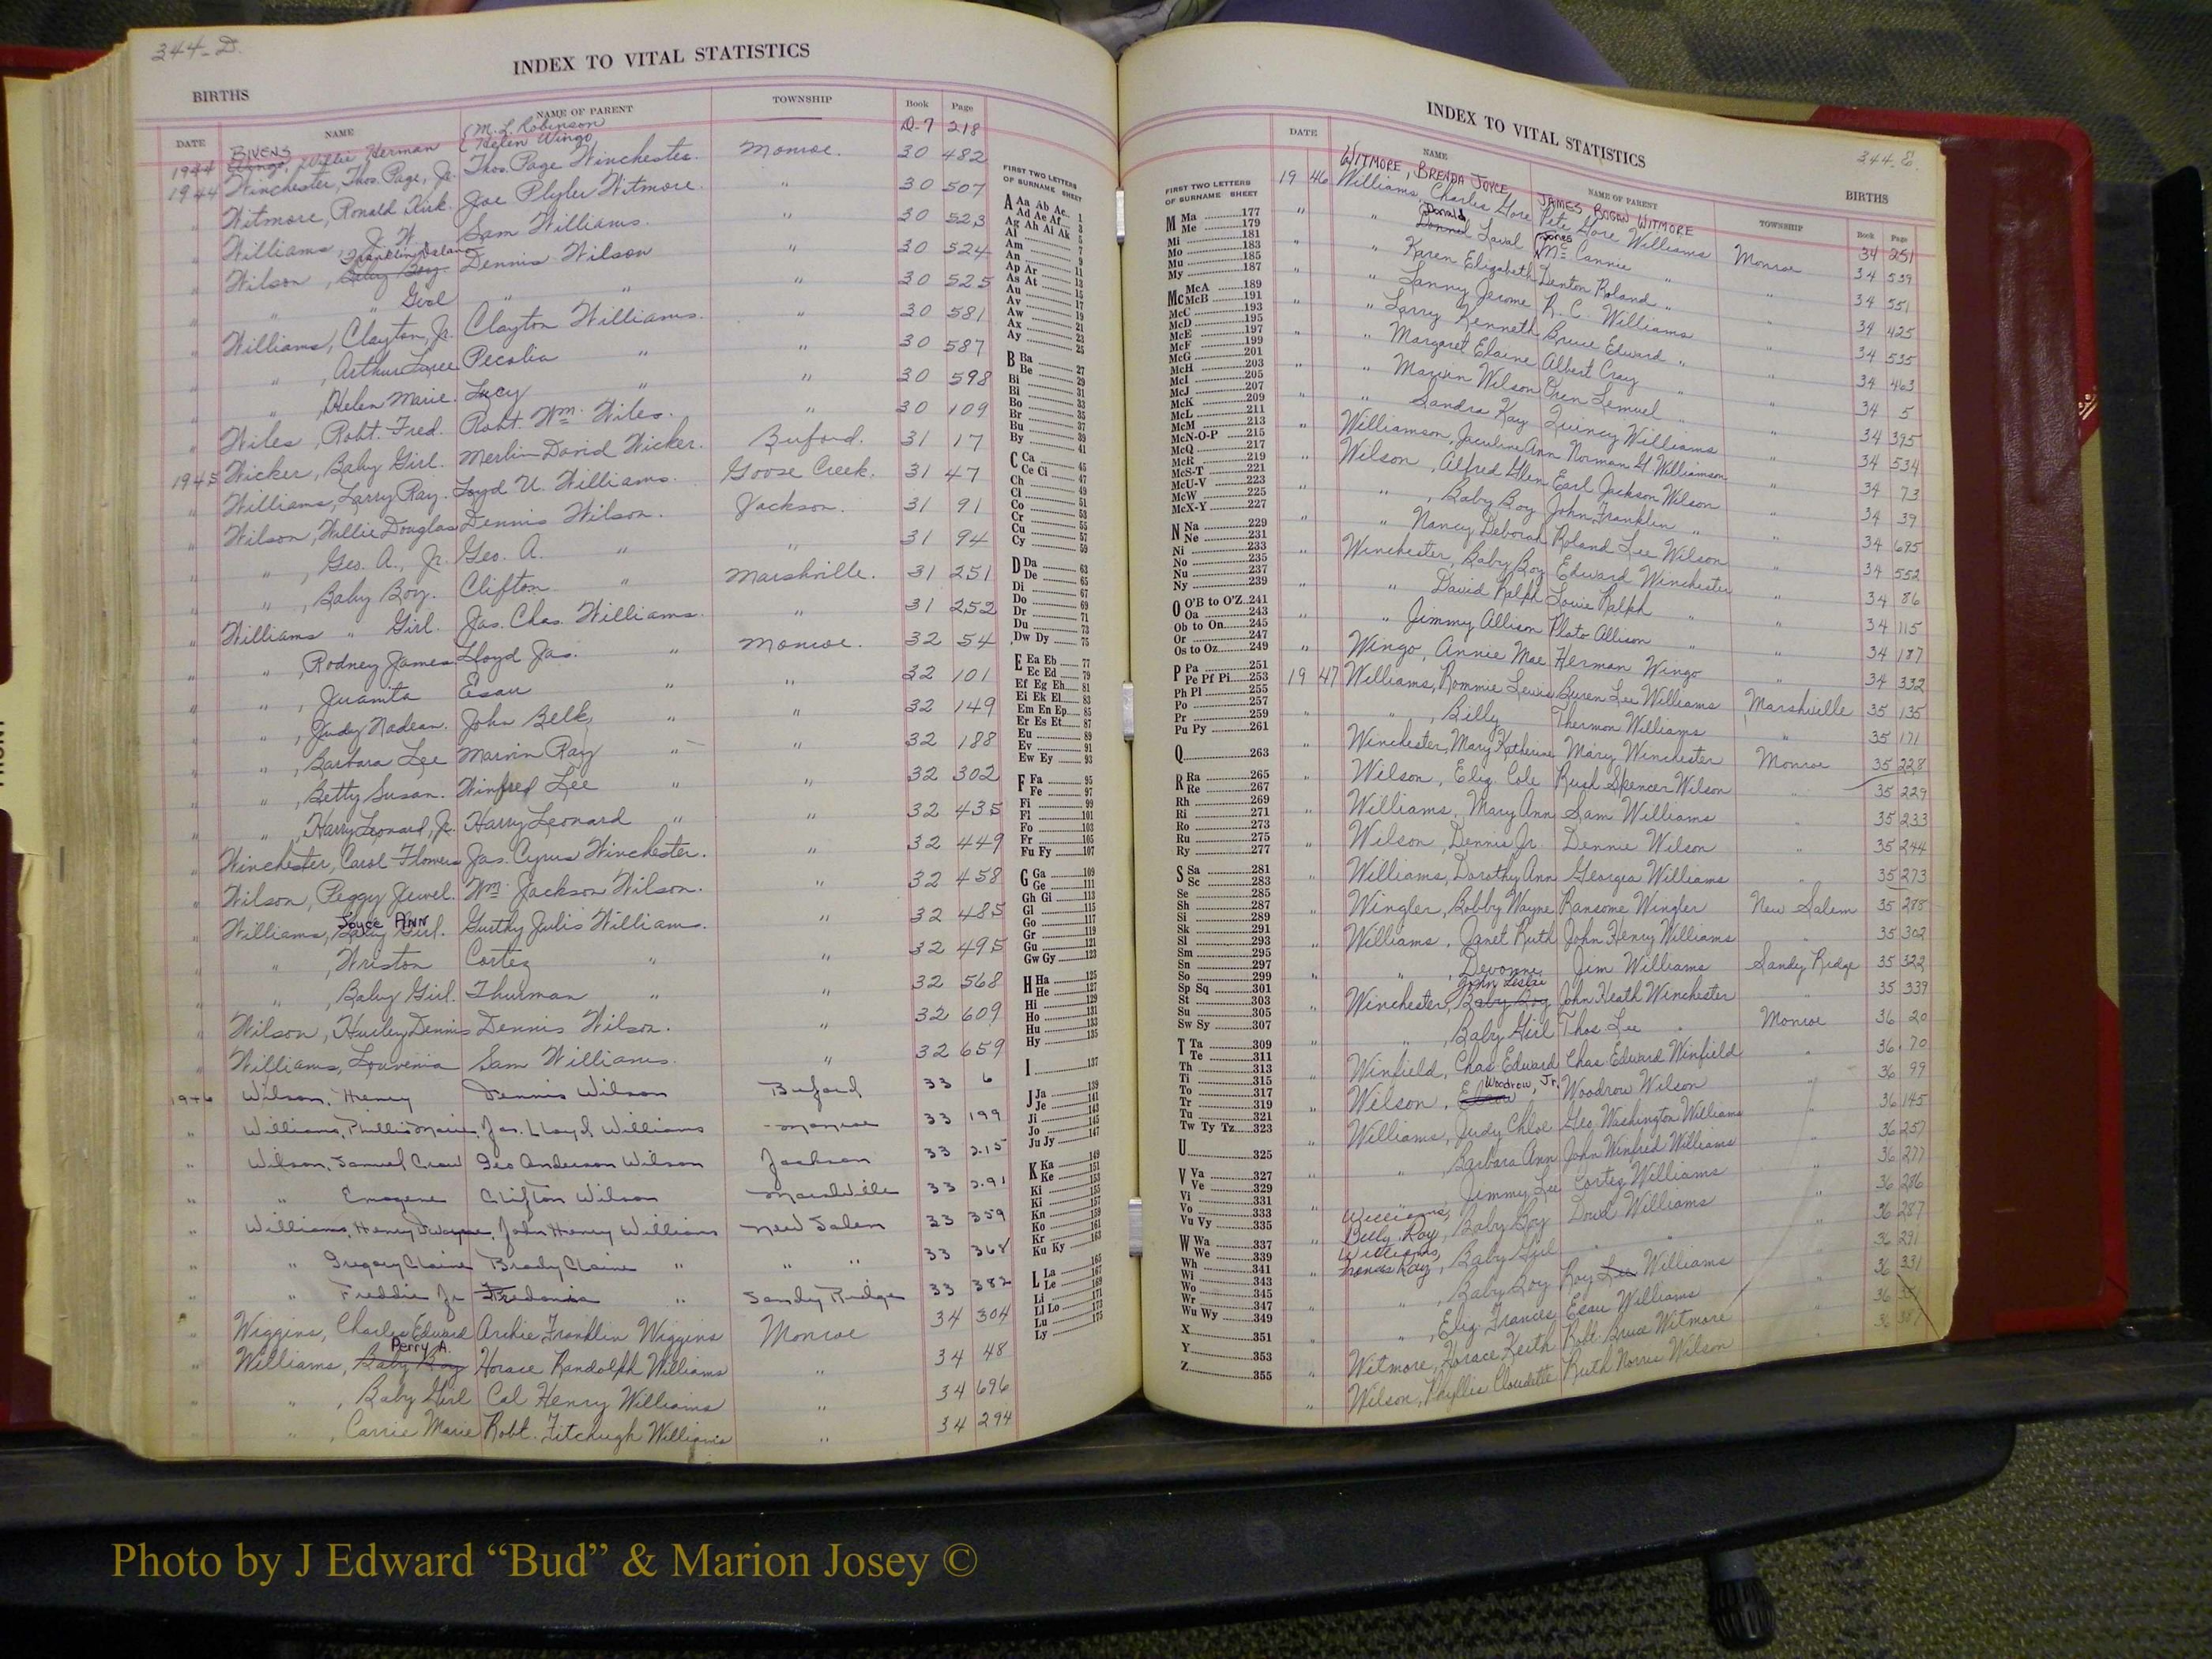 344-D.
INDEX TO VITAL STATISTICS
BIRTHS
DATE NAME NAME OF PARENT TOWNSHIP Book Page
BIVENS { M. L. Robinson D-7 218
1944 Wingo, Willie Herman { Helen Wingo
1944 Winchester, Thos. Page, Jr. Thos. Page Winchester. Monroe. 30 482
" Witmore, Ronald Kirk. Joe Plyler Witmore. " 30 507
" Williams, J. W. Sam Williams. " 30 523
" Wilson, Baby Boy Franklin Delano Dennis Wilson " 30 524
" " " Girl " " " 30 525
" Williams, Clayton, Jr. Clayton Williams. " 30 581
" " , Arthur Pecolia " " 30 587
" " , Helen Marie. Lucy " " 30 598
" Wiles, Robt. Fred. Robt. Wm. Wiles. " 30 109
1945 Wicker, Baby Girl. Merlin David Wicker. Buford. 31 17
" Williams, Larry Ray. Loyd U. Williams. Goose Creek. 31 47
" Wilson, Willie Douglas Dennis Wilson. Jackson. 31 91
" " , Geo. A., Jr. Geo. A. " " 31 94
" " , Baby Boy. Clifton " Marshville. 31 251
" Williams " Girl. Jas. Chas. Williams. " 31 252
" " , Rodney James Lloyd Jas. " Monroe. 32 54
" " , Juanita Esau " " 32 101
" " , Judy Nadean. John Belk, " " 32 149
" " , Barbara Lee Marvin Ray " " 32 188
" " , Betty Susan. Winfred Lee " " 32 302
" " , Harry Leonard, Jr. Harry Leonard " " 32 435
" Winchester, Carol Flowers Jas. Cyrus Winchester. " 32 449
" Wilson, Peggy Jewel. Wm. Jackson Wilson. " 32 458
" Williams, Baby Girl. Joyce Ann Williams. " 32 485
" " , Wriston Cortez " " 32 495
" " , Baby Girl. Thurman " " 32 568
" Wilson, Hurley Dennis Dennis Wilson. " 32 609
" Williams, Louvenia Sam Williams. " 32 659
1946 Wilson, Henry Dennis Wilson Buford 33 6
" Williams, Phillis Marie, Jas. Lloyd Williams Monroe 33 199
" Wilson, Samuel Geo Anderson Wilson Jackson 33 215
" " Emogene Clifton Wilson Marshville 33 291
" Williams, Henry Dwayne, John Henry Williams New Salem 33 359
" " Gregory Claine Brady Claine " " " 33 368
" " Freddie Jr Fredonia " Sandy Ridge 33 382
" Wiggins, Charles Edward Archie Franklin Wiggins Monroe 34 304
" Williams, Baby Boy Perry A. Horace Randolph Williams " 34 48
" " , Baby Girl Cal Henry Williams " 34 696
" " , Carrie Marie Robt. Fitchugh Williams " 34 294
FIRST TWO LETTERS
OF SURNAME SHEET
A Aa Ab Ac 1
Ad Ae Af 3
Ag Ah Ai Ak 5
Al 7
Am 9
An
Ap Ar 11
As At 13
Au 15
Av 17
Aw 21
Ax 23
Ay 25
B Ba 27
Be 29
Bi 31
Bl 33
Bo 35
Br 37
Bu 39
By 41
C Ca 45
Ce Ci 47
Ch 49
Cl 51
Co 53
Cr 55
Cu 57
Cy 59
D Da 63
De 65
Di 67
Do 69
Dr 71
Du 73
Dw Dy 75
E Ea Eb 77
Ec Ed 79
Ef Eg Eh 81
Ei Ek El 83
Em En Ep 85
Er Es Et 87
Eu 89
Ev 91
Ew Ey 93
F Fa 95
Fe 97
Fi 99
Fl 101
Fo 103
Fr 105
Fu Fy 107
G Ga 109
Ge 111
Gh Gi 113
Gl 115
Go 117
Gr 119
Gu 121
Gw Gy 123
H Ha 125
He 127
Hi 129
Ho 131
Hu 133
Hy 135
I 137
J Ja 139
Je 141
Ji 143
Jo 145
Ju Jy 147
K Ka 149
Ke 151
Ki 153
Ki 155
Kn 157
Ko 159
Kr 161
Ku Ky 163
L La 165
Le 167
Li 169
Ll Lo 171
Lu 173
Ly 175
INDEX TO VITAL STATISTICS
344-E.
BIRTHS
FIRST TWO LETTERS
OF SURNAME SHEET
M Ma 177
Me 179
Mi 181
Mo 183
Mu 185
My 187
Mc McA 189
McB 191
McC 193
McD 195
McE 197
McF 199
McG 201
McH 203
McI 205
McJ 207
McK 209
McL 211
McM 213
McN-O-P 215
McQ 217
McR 219
McS-T 221
McU-V 223
McW 225
McX-Y 227
N Na 229
Ne 231
Ni 233
No 235
Nu 237
Ny 239
O O'B to O'Z 241
Oa 243
Ob to On 245
Or 247
Os to Oz 249
P Pa 251
Pe Pf Pi 253
Ph Pl 255
Po 257
Pr 259
Pu Py 261
Q 263
R Ra 265
Re 267
Rh 269
Ri 271
Ro 273
Ru 275
Ry 277
S Sa 281
Sc 283
Se 285
Sh 287
Si 289
Sk 291
Sl 293
Sm 295
Sn 297
So 299
Sp Sq 301
St 303
Su 305
Sw Sy 307
T Ta 309
Te 311
Th 313
Ti 315
To 317
Tr 319
Tu 321
Tw Ty Tz 323
U 325
V Va 327
Ve 329
Vi 331
Vo 333
Vu Vy 335
W Wa 337
We 339
Wh 341
Wi 343
Wo 345
Wr 347
Wu Wy 349
X 351
Y 353
Z 355
DATE NAME NAME OF PARENT TOWNSHIP Book Page
WITMORE, BRENDA JOYCE JAMES BOGAN WITMORE 34 251
19 46 Williams, Charles Gore Pete Gore Williams Monroe 34 539
" " Donald Laval James Mc Cannie " " 34 551
" " Karen Elizabeth Denton Roland " " 34 425
" " Lanny Jerome R. C. Williams " 34 535
" " Larry Kenneth Bruce Edward " " 34 463
" " Margaret Elaine Albert Cray " " 34 5
" " Wilson Oren Lemuel " " 34 395
" " Sandra Kay Quincy Williams " 34 534
" Williamson, Ann Norman H. Williamson " 34 73
" Wilson, Alfred Glen Earl Jackson Wilson " 34 39
" " , Baby Boy John Franklin " " 34 695
" " Nancy Deborah Roland Lee Wilson " 34 552
" Winchester, Baby Boy Edward Winchester " 34 86
" " David Ralph Louie Ralph " " 34 115
" " Jimmy Allison Plato Allison " " 34 187
" Wingo, Annie Mae Herman Wingo " 34 332
19 47 Williams, Rommie Lewis Buren Lee Williams Marshville 35 135
" " , Billy Thermon Williams " 35 171
" Winchester, Mary Katherine Mary Winchester Monroe 35 228
" Wilson, Eliz. Cole Rush Spencer Wilson " 35 229
" Williams, Mary Ann Sam Williams " 35 233
" Wilson, Dennis Jr. Dennie Wilson " 35 244
" Williams, Dorothy Ann Georgea Williams " 35 273
" Wingler, Bobby Wayne Ransome Wingler New Salem 35 288
" Williams, Janet Ruth John Henry Williams " 35 302
" " , Devonne Jim Williams Sandy Ridge 35 322
" Winchester, Baby Boy John Leslie John Heath Winchester " 35 339
" " , Baby Girl Thos. Lee " Monroe 36 20
" Winfield, Chas. Edward Chas. Edward Winfield " 36 70
" Wilson, Woodrow, Jr. Woodrow Wilson " 36 99
" Williams, Judy Chloe Geo. Washington Williams " 36 145
" " , Barbara Ann John Winfred Williams 36 257
" , Jimmy Lee Cortez Williams 36 277
" Williams, Billy Ray, Baby Boy Dowd Williams " 36 286
" Williams, Ray, Baby Girl " " 36 287
" " , Baby Boy Roy Lee Williams 36 291
" " , Eliz. Frances Esau Williams 36 331
" Witmore, Horace Keith Robt. Bruce Witmore 36
" Wilson, Phyllis Claudette Ruth Norris Wilson 36
Photo by J Edward “Bud” & Marion Josey ©